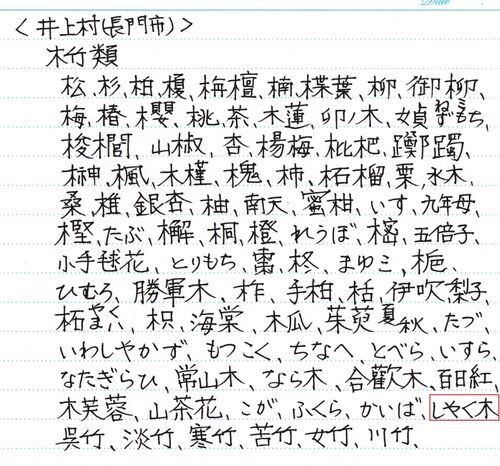 Date
＜井上村(長門市)＞
木竹類
松、杉、柏、榎、栴檀、楠、楪葉、柳、御柳、
梅、椿、櫻、桃、茶、木蓮、卯ノ木、女貞ねずもち、
椶櫚、山椒、杏、楊梅、枇杷、躑躅、
榊、楓、木槿、槐、柿、柘榴、栗、水木、
桑、椎、銀杏、柚、南天、蜜柑、いす、九年母、
樫、たぶ、檞、桐、橙、れうぼ、樒、五倍子、
小手毬花、とりもち、棗、柊、まゆミ、梔、
ひむろ、勝軍木、柞、手柏、栝、伊吹、梨子、
柘、枳、海棠、木瓜、茱萸夏秋、たづ、
いわしやかず、もつこく、ちなへ、とべら、いすら、
なたぎらひ、常山木、なら木、合歡木、百日紅、
木芙蓉、山茶花、こが、ふくら、かいば、しやく木
呉竹、淡竹、寒竹、苦竹、女竹、川竹、